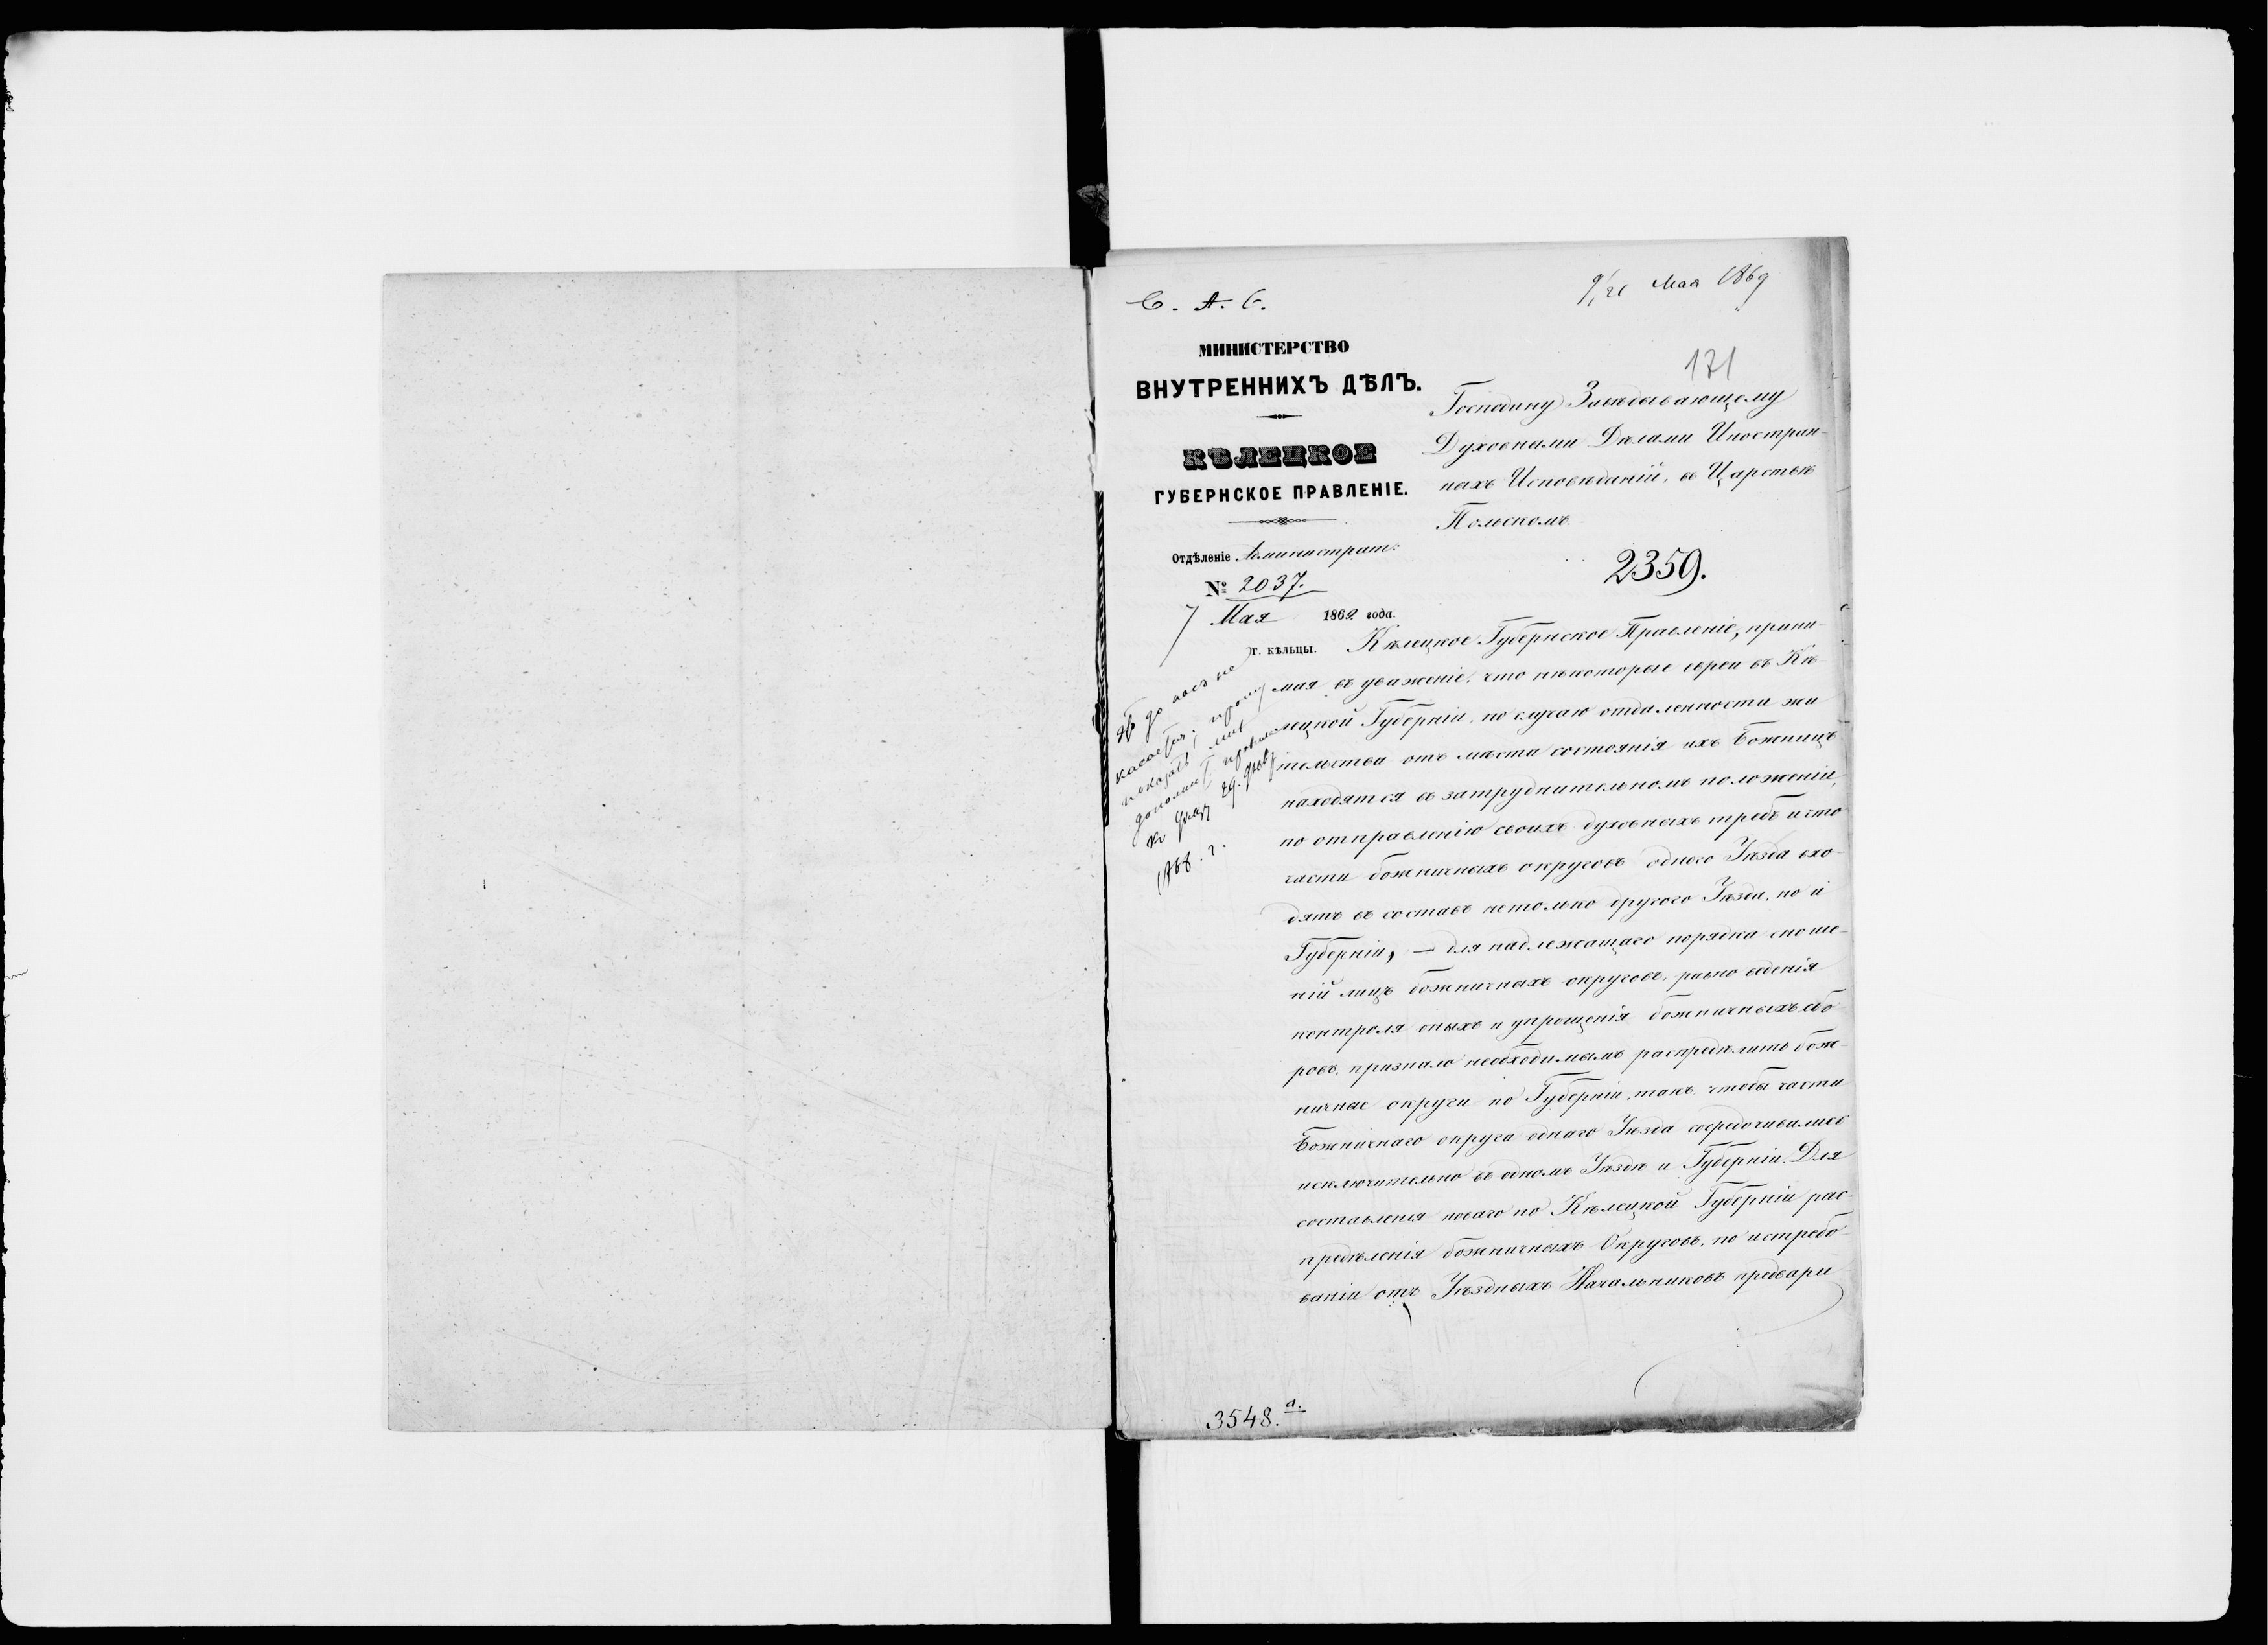 С. А. С.
9/21 Мая 1869
171
МИНИСТЕРСТВО
ВНУТРЕННИХЪ ДѢЛЪ.
КѢЛЕЦКОЕ
ГУБЕРНСКОЕ ПРАВЛЕНІЕ.
Отдѣленіе Администрат:
№ 2037.
7 Мая 1869 года.
г. КѢЛЬЦЫ.
Господину Завѣдывающему
Духовными Дѣлами Иностран-
ныхъ Исповѣданій, въ Царствѣ
Польскомъ.
2359.
до насъ не
касается, прошу
показать мнѣ
къ указу 29. февр.
186 . г.
Кѣлецкое Губернское Правленіе, прини-
мая въ уваженіе, что нѣкоторые евреи въ Кѣ-
лецкой Губерніи, по случаю отдаленности жи
тельства отъ мѣста состоянія ихъ Божницъ
находятся въ затруднительномъ положеніи,
по отправленію своихъ духовныхъ требъ и что
части божничныхъ округовъ одного Уѣзда вхо-
дятъ въ составъ нетолько другого Уѣзда, но и
Губерніи, — для надлежащаго порядка сноше-
ній лицъ божничныхъ округовъ, равно веденія
контроля оныхъ и упрощенія божничныхъ сбо-
ровъ, признало необходимымъ распредѣлить бож-
ничные округи по Губерніи такъ чтобы части
Божничнаго округа однаго Уѣзда сосредочивались
исключительно въ одномъ Уѣздѣ и Губерніи. Для
составленія новаго по Кѣлецкой Губерніи рас-
предѣленія божничныхъ Округовъ, по истребо-
ваніи отъ Уѣздныхъ Начальниковъ предвари
3548. а.